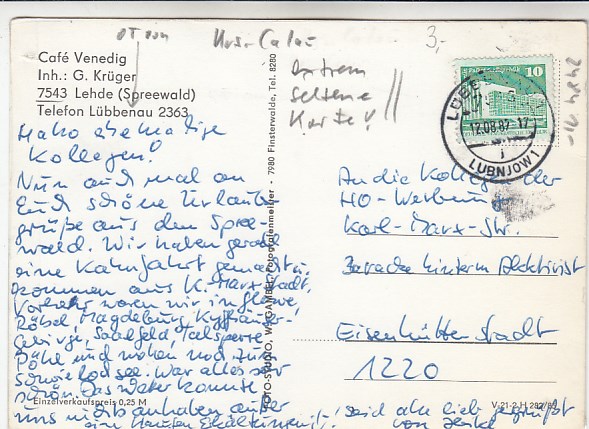 OT von
Kreis Calau
3,-
extrem
seltene
Karte!
Café Venedig
Inh.: G. Krüger
7543 Lehde (Spreewald)
Telefon Lübbenau 2363
Hallo ehemalige
Kollegen!
Nun auch mal an
Euch schöne Urlaubs-
grüße aus dem Spree-
wald. Wir haben gerade
eine Kahnfahrt gemacht u.
kommen aus K.-Marx-Stadt.
Vorher waren wir in
Röbel, Magdeburg, Kyffhäuser-
Gebirge, Saalfeld, Talsperre
Pöhl und wollen noch zum
Schwielochsee. War alles sehr
schön. Das Wetter konnte
uns nichts anhaben außer
einer
Einzelverkaufspreis 0,25 M
FOTO-STUDIO, W. GAMBKE, Fotografenmeister - 7980 Finsterwalde, Tel. 8280
10
LÜBBENAU 1
12.08.87-17
j
LUBNJOW 1
An die Kollegen der
HO-Werbung
Karl-Marx-Str.
Baracke hinterm Aktivist
Eisenhüttenstadt
1220
V-21-2 H 282/82
Seid alle lieb gegrüßt
von